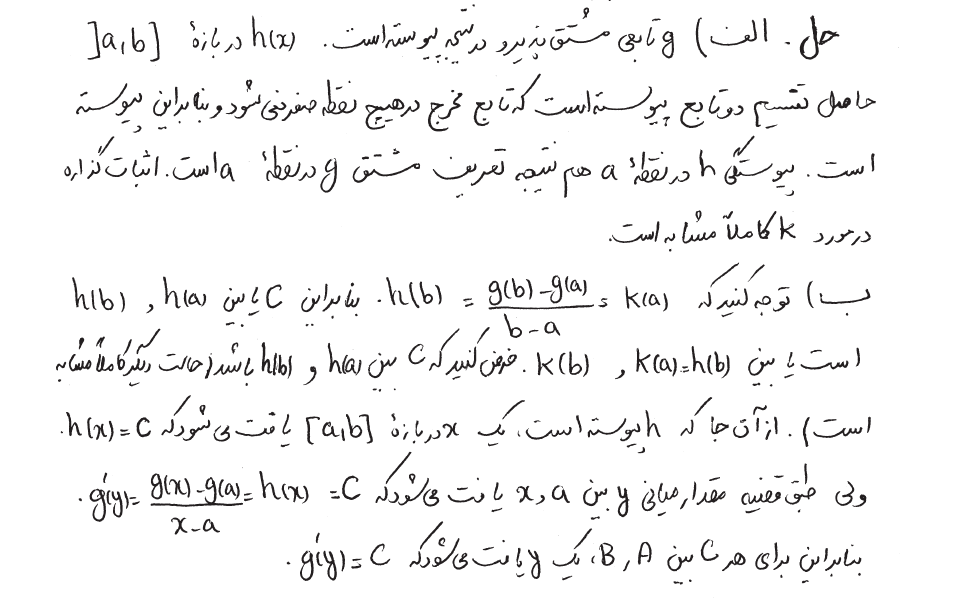 حل. الف) g تابعی مشتق پذیر و در نتیجه پیوسته است. h(x) در بازهٔ ]a,b]
حاصل تقسیم دو تابع پیوسته است که تابع مخرج در هیچ نقطه صفر نمی شود و بنابراین پیوسته
است. پیوستگی h در نقطهٔ a هم نتیجه تعریف مشتق g در نقطهٔ a است. اثبات گزاره
در مورد k کاملاً مشابه است.
ب) توجه کنید که h(b) = \frac{g(b)-g(a)}{b-a} = k(a). بنابراین C یا بین h(a) و h(b)
است یا بین k(a)=h(b) و k(b). فرض کنید که C بین h(a) و h(b) باشد (حالت دیگر کاملاً مشابه
است). از آن جا که h پیوسته است، یک x در بازهٔ [a,b] یافت می شود که h(x)=C.
ولی طبق قضیه مقدار میانی y بین a و x یافت می شود که g'(y)= \frac{g(x)-g(a)}{x-a} = h(x) = C.
بنابراین برای هر C بین A و B، یک y یافت می شود که g'(y)=C.